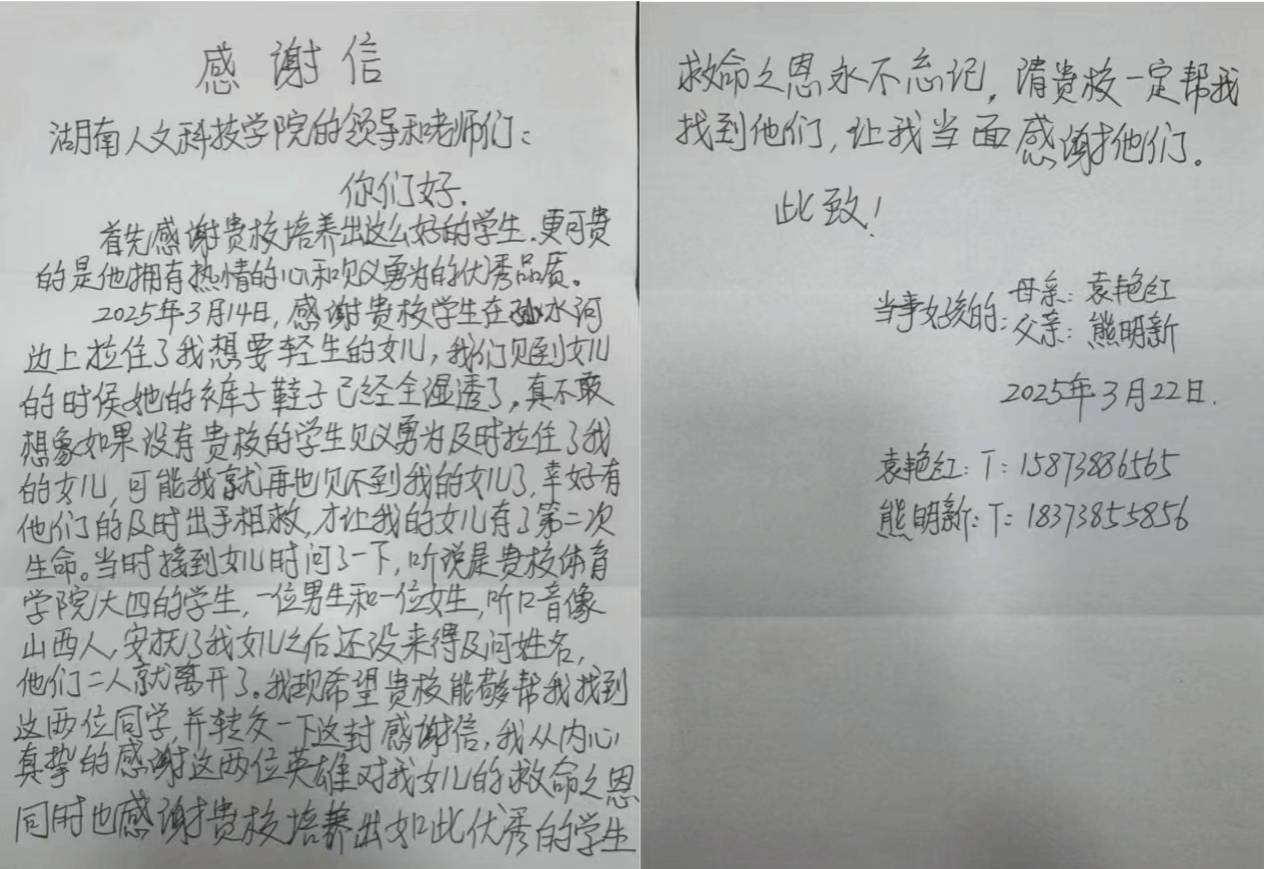 感谢信
湖南人文科技学院的领导和老师们：
你们好.
首先感谢贵校培养出这么好的学生.更可贵
的是他拥有热情的心和见义勇为的优秀品质。
2025年3月14日,感谢贵校学生在孙水河
边上拉住了我想要轻生的女儿,我们见到女儿
的时侯她的裤子鞋子已经全湿透了,真不敢
想象如果没有贵校的学生见义勇为及时拉住了我
的女儿,可能我就再也见不到我的女儿了,幸好有
他们的及时出手相救,才让我的女儿有了第二次
生命。当时接到女儿时问了一下,听说是贵校体育
学院大四的学生,一位男生和一位女生,听口音像
山西人,安抚了我女儿之后还没来得及问姓名,
他们二人就离开了。我现希望贵校能够帮我找到
这两位同学,并转交一下这封感谢信,我从内心
真挚的感谢这两位英雄对我女儿的救命之恩
同时也感谢贵校培养出如此优秀的学生
救命之恩永不忘记,请贵校一定帮我
找到他们,让我当面感谢他们。
此致!
当事女孩的:母亲:袁艳红
父亲:熊明新
2025年3月22日.
袁艳红:T:15873886565
熊明新:T:18373855856